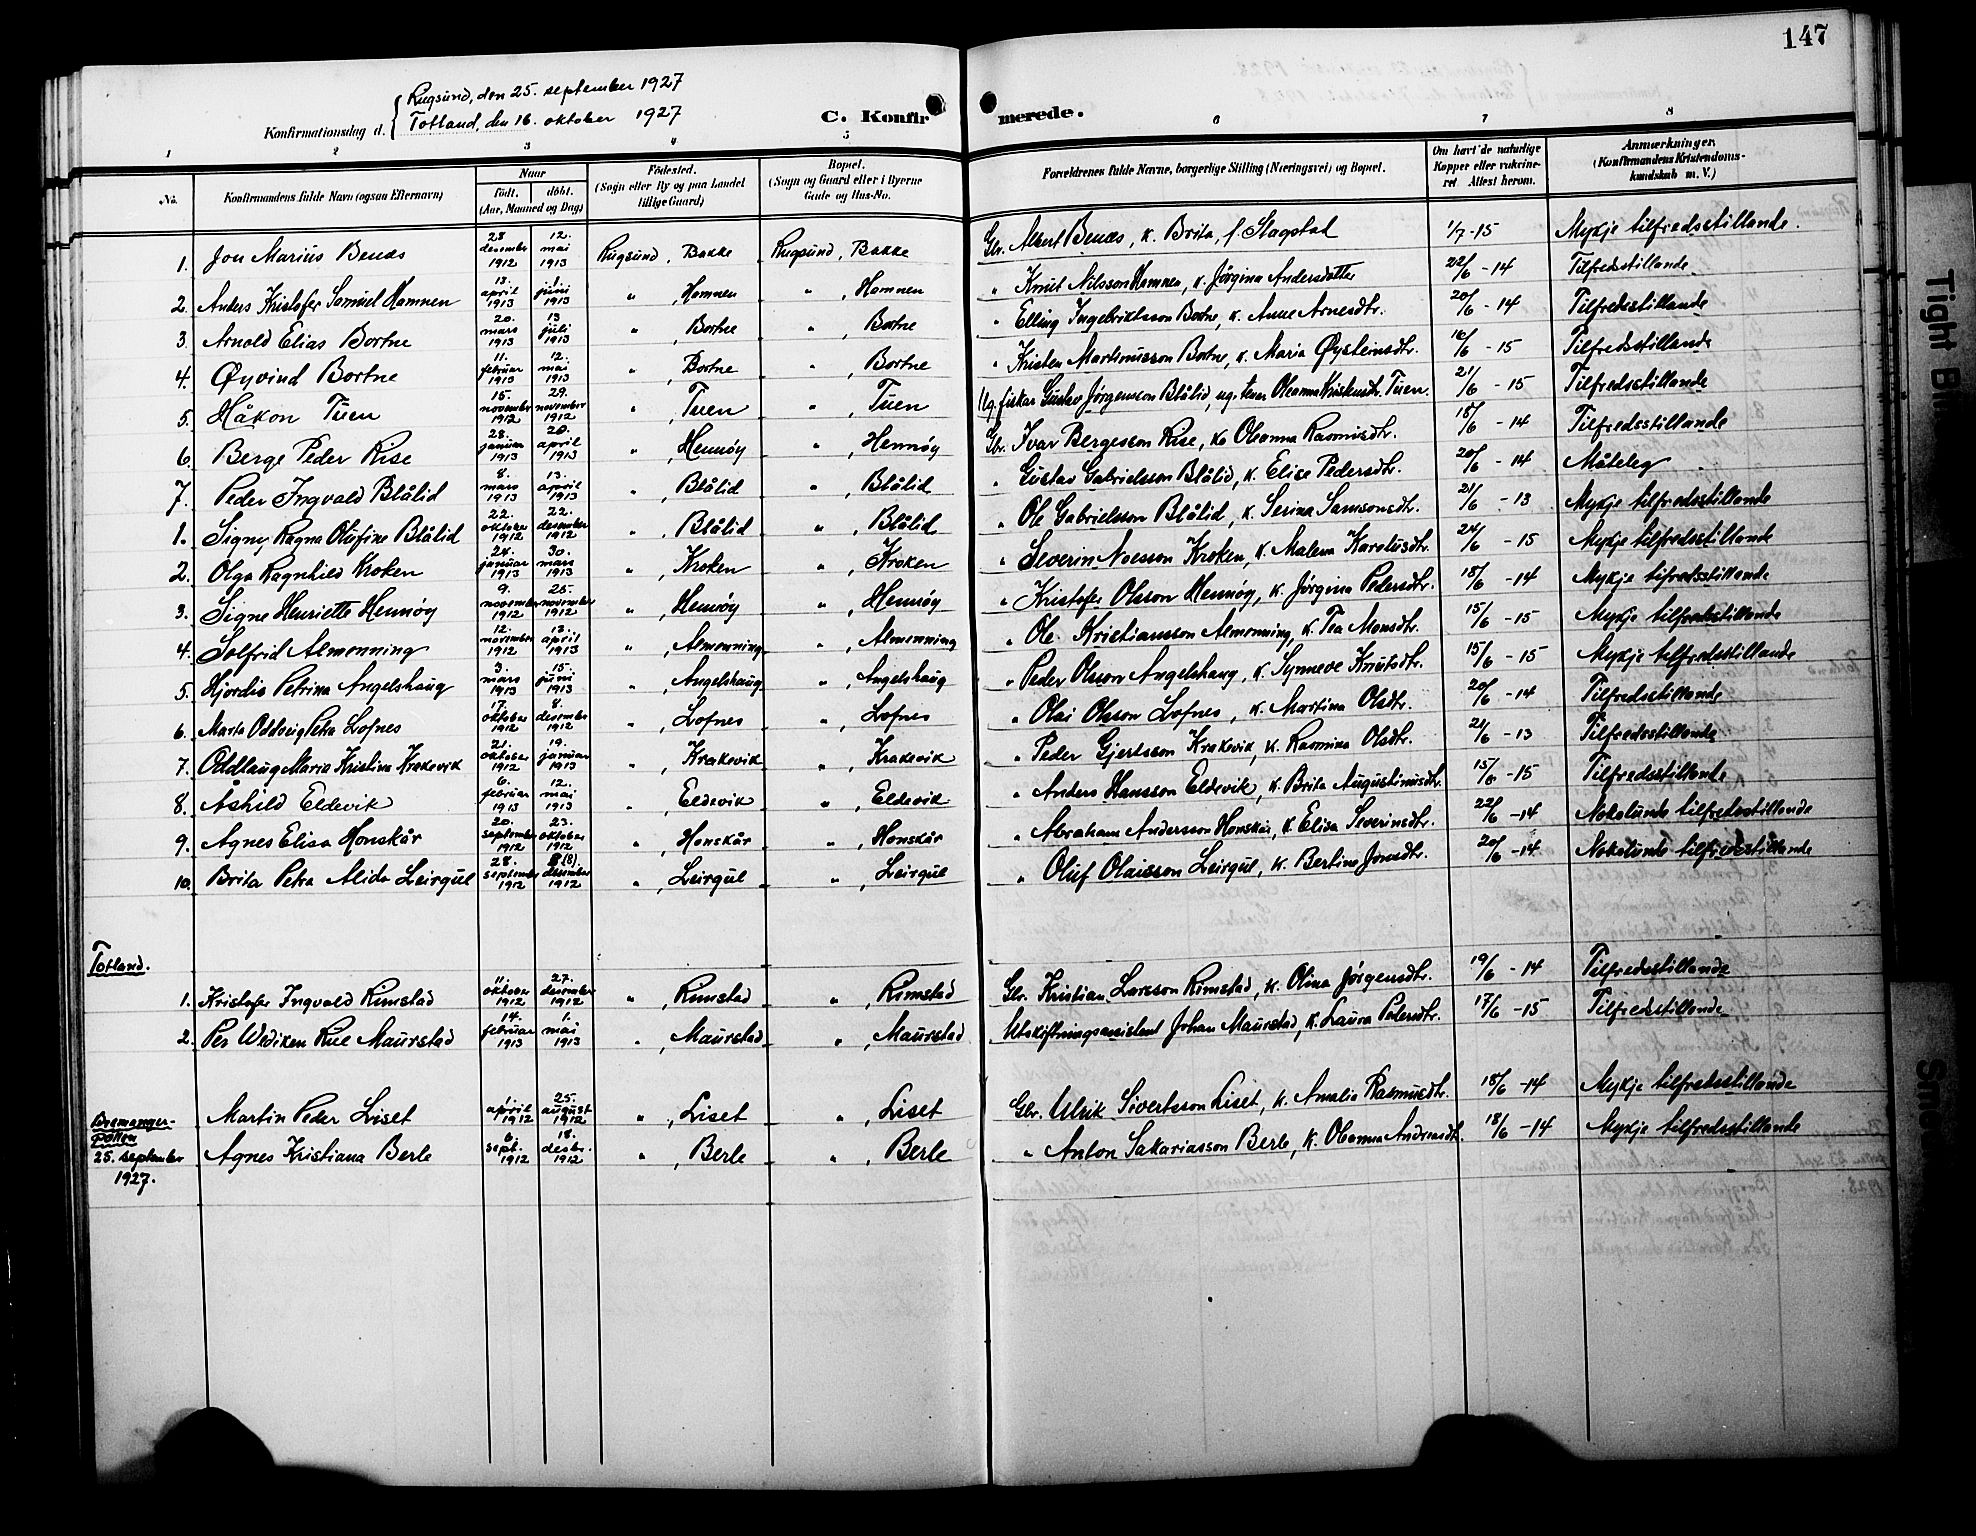 147
Rugsund, den 25. september 1927
Konfirmationsdag d. Totland, den 16. oktober 1927
C. Konfirmerede.
1 2 3 4 5 6 7 8
No. Konfirmandens fulde Navn (ogsaa Efternavn) Naar født. døbt. (Aar, Maaned og Dag) Fødested. (Sogn eller By og paa Landet tillige Gaard) Bopæl. (Sogn og Gaard eller i Byerne Gade og Hus-No. Forældrenes fulde Navne, borgerlige Stilling (Næringsvei) og Bopæl. Om havt de naturlige Kopper eller vakcineret Attest herom. Anmærkninger (Konfirmandens Kristendomskundskab m. V.)
1. Jon Marius Benæs 28 desember 1912 12. mai 1913 Rugsund, Bakke Rugsund, Bakke Gbr. Albert Benæs, k. Brita, f. Stagstad 1/7 -15 Mykje tilfredsstillande.
2. Anders Kristofer Samuel Hamnen 13. april 1913 1. juni 1913 " , Hamnen " , Hamnen " Knut Nilsson Hamnen, k. Jørgina Andersdatter 22/6 - 14 Tilfredsstillande
3. Arnold Elias Bortne 20. mars 1913 13 juli 1913 " , Bortne " , Bortne " Elling Ingebriktsson Bortne, k. Anne Arnesdtr. 20/6 - 14 Tilfredsstillande
4. Øyvind Bortne 11. februar 1913 12. mai 1913 " , Bortne " , Bortne " Kristen Martinusson Bortne, k. Maria Øysteinsdtr. 16/6 - 15 Tilfredsstillande
5. Håkon Tuen 15. november 1912 29. november 1912 " , Tuen " , Tuen Ug. fiskar Gustav Jørgensson Blålid, ug. Oleanna Tuen. 21/6 - 15 Tilfredsstillande
6. Berge Peder Rise 28. januar 1913 20. april 1913 " , Hennøy " , Hennøy Gbr. Ivar Bergesson Rise, k. Oleanna Rasmusdtr. 18/6 - 14 Tilfredsstillande
7. Peder Ingvald Blålid 8. mars 1913 13. april 1913 " , Blålid " , Blålid " Gustav Gabrielsson Blålid, k. Elise Pedersdtr. 20/6 - 14 Måteleg
1. Signy Ragna Olufine Blålid 22. oktober 1912 22. desember 1912 " , Blålid " , Blålid " Ole Gabrielsson Blålid, k. Serina Samsonsdtr. 21/6 - 13 Mykje tilfredsstillande
2. Olga Ragnhild Kroken 24. januar 1913 30. mars 1913 " , Kroken " , Kroken " Severin Noesson Kroken, k. Malena Karolusdtr. 24/6 - 15 Mykje tilfredsstillande
3. Signe Henriette Hennøy 9. november 1912 25. november 1912 " , Hennøy " , Hennøy " Kristofer Olsson Hennøy, k. Jørgina Pedersdtr. 18/6 - 14 Mykje tifredsstillande
4. Solfrid Almenning 12. november 1912 13. april 1913 " , Almenning " , Almenning " Ole Kristiansson Almenning, k. Tea Monsdtr. 15/6 - 15 Mykje tilfredsstillande
5. Hjørdis Petrina Angelshaug 3. mars 1913 15. juni 1913 " , Angelshaug " , Angelshaug " Peder Olsson Angelshaug, k. Synneve Knutsdtr. 15/6 - 15 Mykje tilfredsstillande
6. Marta Oddveig Petra Lofnes 17. oktober 1912 8. desember 1912 " , Lofnes " , Lofnes " Olai Olsson Lofnes, k. Martina Olsdtr. 20/6 - 14 Tilfredsstillande
7. Oddlaug Maria Kristina Krakevik 21. oktober 1912 19. januar 1913 " , Krakevik " , Krakevik " Peder Gjertsson Krakevik, k. Rasmina Olsdtr. 21/6 - 13 Tilfredsstillande
8. Ashild Eldevik 6. februar 1913 12. mai 1913 " , Eldevik " , Eldevik " Anders Hansson Eldevik, k. Brita Augustinusdtr. 15/6 - 15 Tilfredsstillande
9. Agnes Elisa Honskår 20. september 1912 23. oktober 1912 " , Honskår " , Honskår " Abraham Andersson Honskår, k. Elisa Severinsdtr. 22/6 - 14 Nokolunde tilfredsstillande
10. Brita Petra Alida Leirgul 28. september 1912 8 (8). desember 1912 " , Leirgul " , Leirgul " Oluf Olaisson Leirgul, k. Bertine Jonsdtr. 20/6 - 14 Nokolunde tilfredsstillande
Totland.
1. Kristofer Ingvald Rimstad 11. oktober 1912 27. desember 1912 " , Rimstad " , Rimstad Gbr. Kristian Larsson Rimstad, k. Olina Jørgensdtr. 19/6 - 14 Tilfredsstillande
2. Per Wediken Rue Maurstad 14. februar 1913 1. mai 1913 " , Maurstad " , Maurstad Utskiftningsassistent Johan Maurstad, k. Laura Petersdtr. 17/6 - 15 Tilfredsstillande
Martin Peder Liset 1. april 1912 25. august 1912 " , Liset " , Liset Gbr. Ulrik Sivertsson Liset, k. Amalia Rasmusdtr. 18/6 - 14 Mykje tilfredsstillande
Bremanger-
pollen
25. september
1927.
Agnes Kristiana Berle 6. sept. 1912 18. desbr. 1912 " , Berle " , Berle " Anton Sakariasson Berle, k. Oleanna Andreasdtr. 18/6 - 14 Mykje tilfredsstillande
Tight Bin
Sme